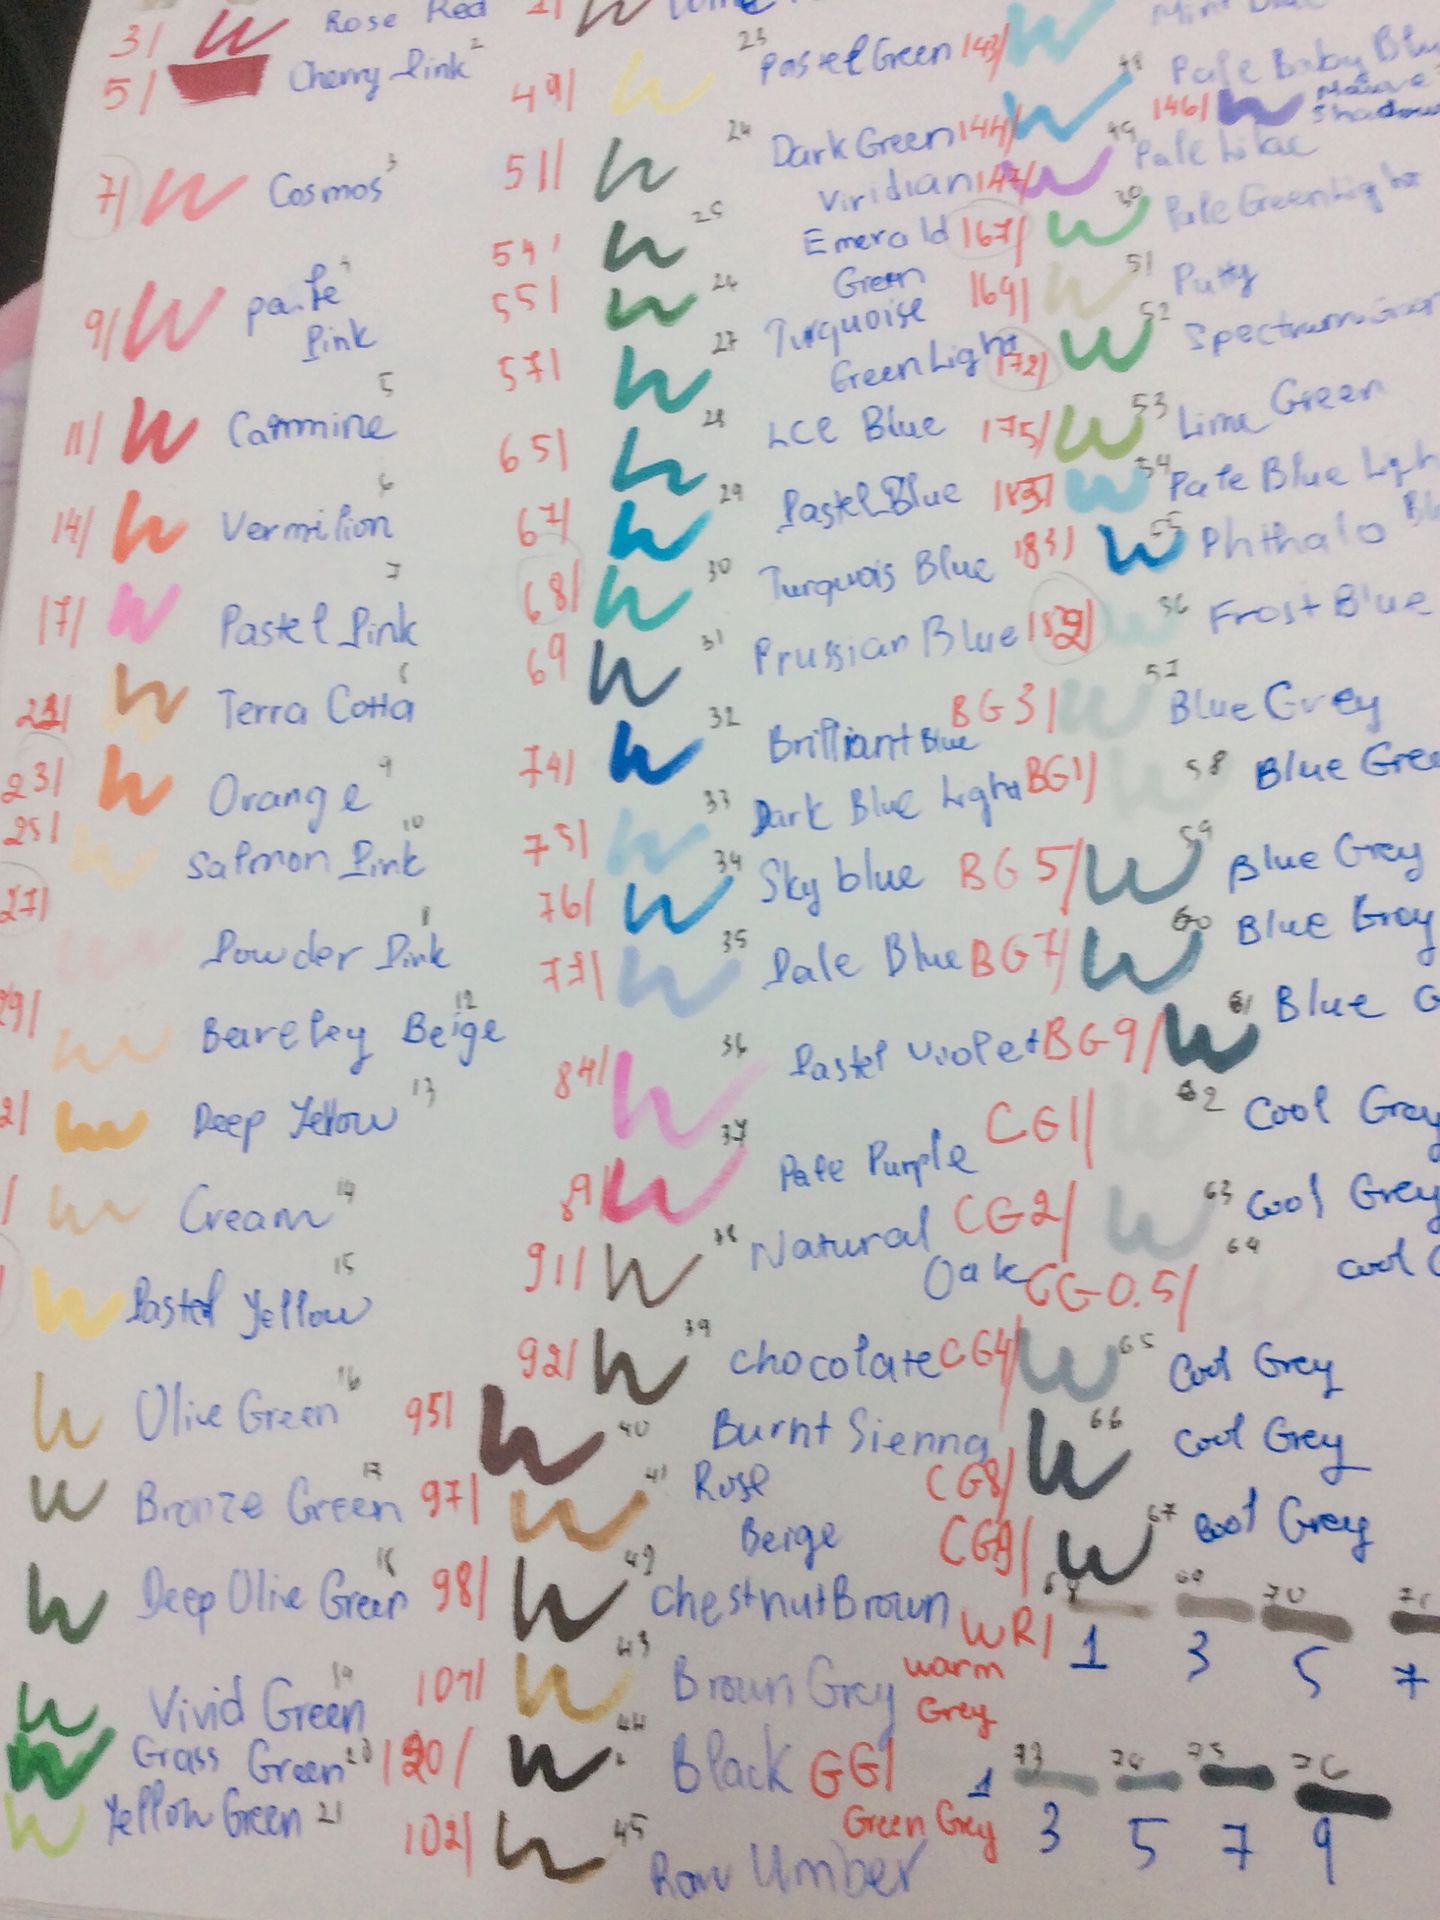 3/ Rose Red
5/ Cherry Pink 2
7/ Cosmos 3
9/ pale Pink 4
11/ Carmine 5
14/ Vermilion 6
17/ Pastel Pink 7
21/ Terra Cotta 8
23/ Orange 9
25/ Salmon Pink 10
27/ Powder Pink 11
29/ Bareley Beige 12
2/ Deep Yellow 13
/ Cream 14
Pastel Yellow 15
Olive Green 16
Bronze Green 17
Deep Olive Green 18
Vivid Green 19
Grass Green 20
Yellow Green 21
49/ 23 Pastel Green
51/ 24 Dark Green
54/ 25 Viridian
Emerald
55/ 26 Green
57/ 27 Turquoise
Green Light
65/ 28 ICE Blue
67/ 29 Pastel Blue
68/ 30 Turquois Blue
69 31 Prussian Blue
74/ 32 Brilliant Blue
75/ 33 Dark Blue Light
76/ 34 Sky blue
77/ 35 Pale Blue
84/ 36 Pastel Violet
89/ 37 Pale Purple
91/ 38 Natural
Oak
92/ 39 Chocolate
95/ 40 Burnt Sienna
97/ 41 Rose
Beige
98/ 42 Chestnut Brown
43 Brown Grey
120/ 44 Black
102/ 45 Raw Umber
143/
144/ 48 Pale Baby Blu
146/ Mauve Shadow
147/ 49 Pale Lilac
167/ 50 Pale Green Light
169/ 51 Putty
172/ 52 Spectrum
175/ 53 Lime Green
54 Pale Blue Ligh
183/ 55 Phthalo Bl
56 Frost Blue
BG3/ 57 Blue Grey
BG1/ 58 Blue Gre
BG5/ 59 Blue Grey
BG7/ 60 Blue Grey
BG9/ 61 Blue G
CG1/ 62 Cool Grey
CG2/ 63 Cool Grey
CG-0.5/ 64 Cool
CG4/ 65 Cool Grey
CG8/ 66 Cool Grey
CG9/ 67 Cool Grey
WR/ 68 69 70 71
1 3 5 7
warm
Grey
GG/ 73 74 75 76
1 3 5 7 9
Green Grey